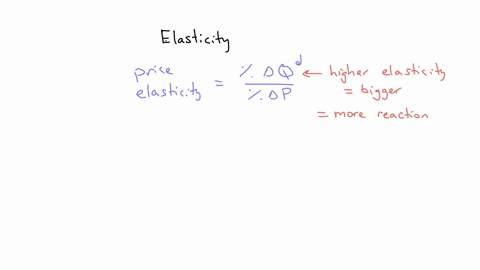 Elasticity
price elasticity = % ΔQᵈ / % ΔP
← higher elasticity
= bigger
= more reaction